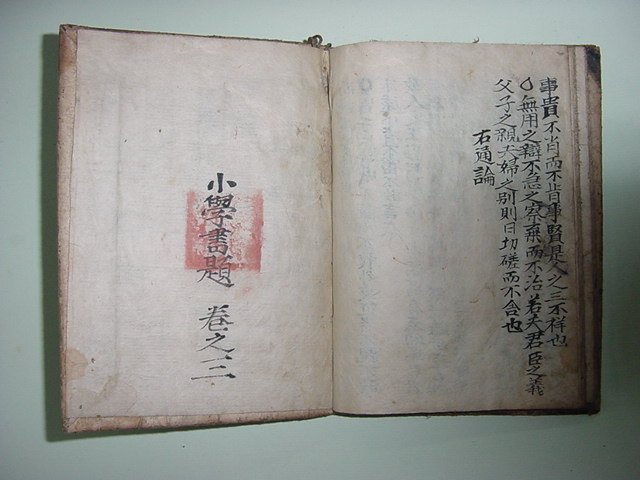 事貴不肖而不肯事賢是人之三不祥也
○無用之辯不急之察棄而不治若夫君臣之義
父子之親夫婦之別則日切磋而不舍也
右通論
小學書題 卷之三